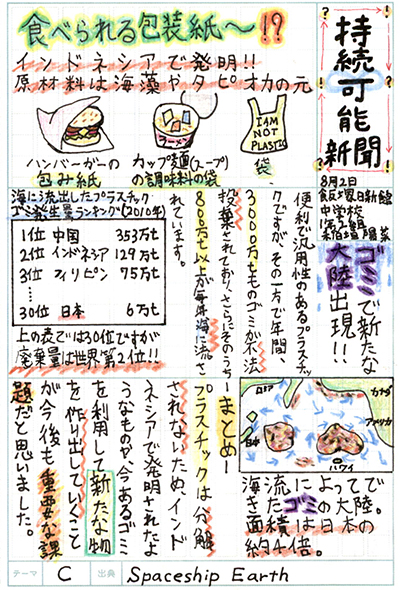 持続可能新聞
食べられる包装紙〜!?
インドネシアで発明!!
原材料は海藻やタピオカの元
ラーメン
I AM
NOT
PLASTIC
ハンバーガーの
包み紙
カップ麺(スープ)
の調味料の袋
袋
8月2日
日新館
中学校
1年2組
ゴミで新たな
大陸出現!!
便利で汎用性のあるプラスチッ
クですが、その一方で年間、
3000万tものゴミが不法
投棄されており、さらにそのうち
800万t以上が毎年海に流さ
れています。
海に流出したプラスチック
ゴミ発生量ランキング(2010年)
1位 中国 353万t
2位 インドネシア 129万t
3位 フィリピン 75万t
30位 日本 6万t
上の表では30位ですが
廃棄量は世界第2位!!
ロシア
カナダ
アメリカ
日本
ハワイ
海流によってで
きたゴミの大陸。
面積は日本の
約4倍。
ーまとめー
プラスチックは分解
されないため、インド
ネシアで発明されたよ
うなものや、今あるゴミ
を利用して新たな物
を作り出していくこと
が今後も重要な課
題だと思いました。
テーマ C 出典 Spaceship Earth